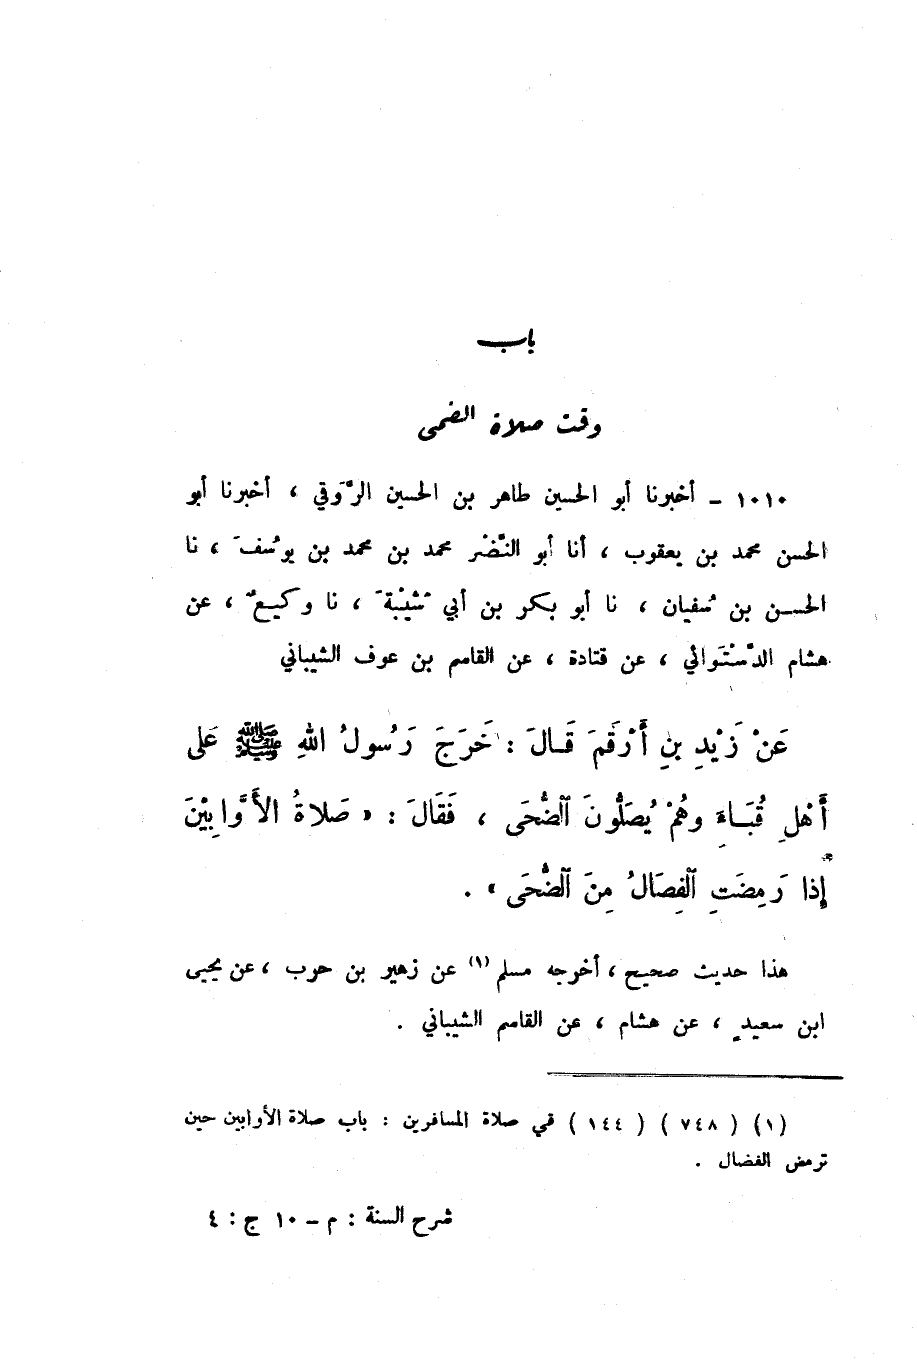 باب
وقت صلاة الضحى
١٠١٠ – أخبرنا أبو الحسين طاهر بن الحسين الرَّوَقي ، أخبرنا أبو
الحسن محمد بن يعقوب ، أنا أبو النَّضْر محمد بن محمد بن يوسُفَ ، نا
الحسن بن سُفيان ، نا أبو بكر بن أبي شَيْبَةَ ، نا وكيعٌ ، عن
هشام الدَّسْتَوائي ، عن قتادة ، عن القاسم بن عوف الشيباني
عَنْ زَيْدِ بنِ أَرْقَمَ قَالَ : خَرَجَ رَسُولُ اللهِ ﷺ عَلى
أَهْلِ قُبَاءَ وهُمْ يُصَلُّونَ ٱلضُّحَى ، فَقَالَ : « صَلاةُ الأَوَّابِيْنَ
إِذا رَمِضَتِ ٱلفِصَالُ مِنَ ٱلضُّحَى » .
هذا حديث صحيح ، أخرجه مسلم (١) عن زهير بن حرب ، عن يحيى
ابن سعيدٍ ، عن هشام ، عن القاسم الشيباني .
(١) ( ٧٤٨ ) ( ١٤٤ ) في صلاة المسافرين : باب صلاة الأوابين حين
ترمض الفضال .
شرح السنة : م – ١٠ ج : ٤